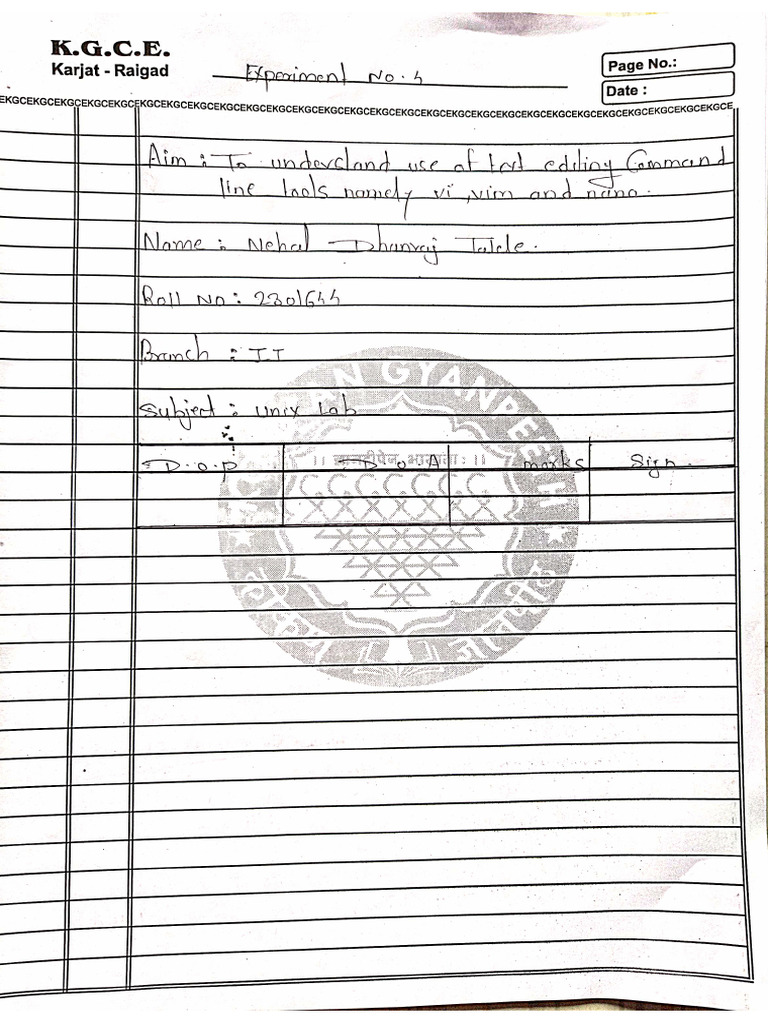 K.G.C.E.
Karjat - Raigad
Experiment No. 4
Page No.:
Date :
EKGCEKGCEKGCEKGCEKGCEKGCEKGCEKGCEKGCEKGCEKGCEKGCEKGCEKGCEKGCEKGCEKGCEKGCEKGCEKGCEKGCEKGCEKGCEKGCEKGCEKGCE
Aim : To understand use of text editing Command
line tools namely vi, vim and nano.
Name : Nehal Dhanraj
Roll No : 2301644
Branch : I.T
Subject : Unix Lab
D.O.P D.O.A marks Sign.
GYANPEETH